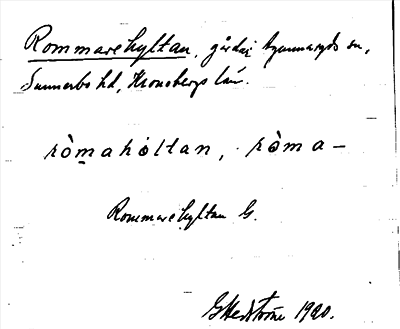 Rommarehyltan, gårdar i Agunnaryds sn,
Sunnerbo hd, Kronobergs län.
ròmahòltan, ròma-
Rommarehyltan G.
G Hedström 1920.